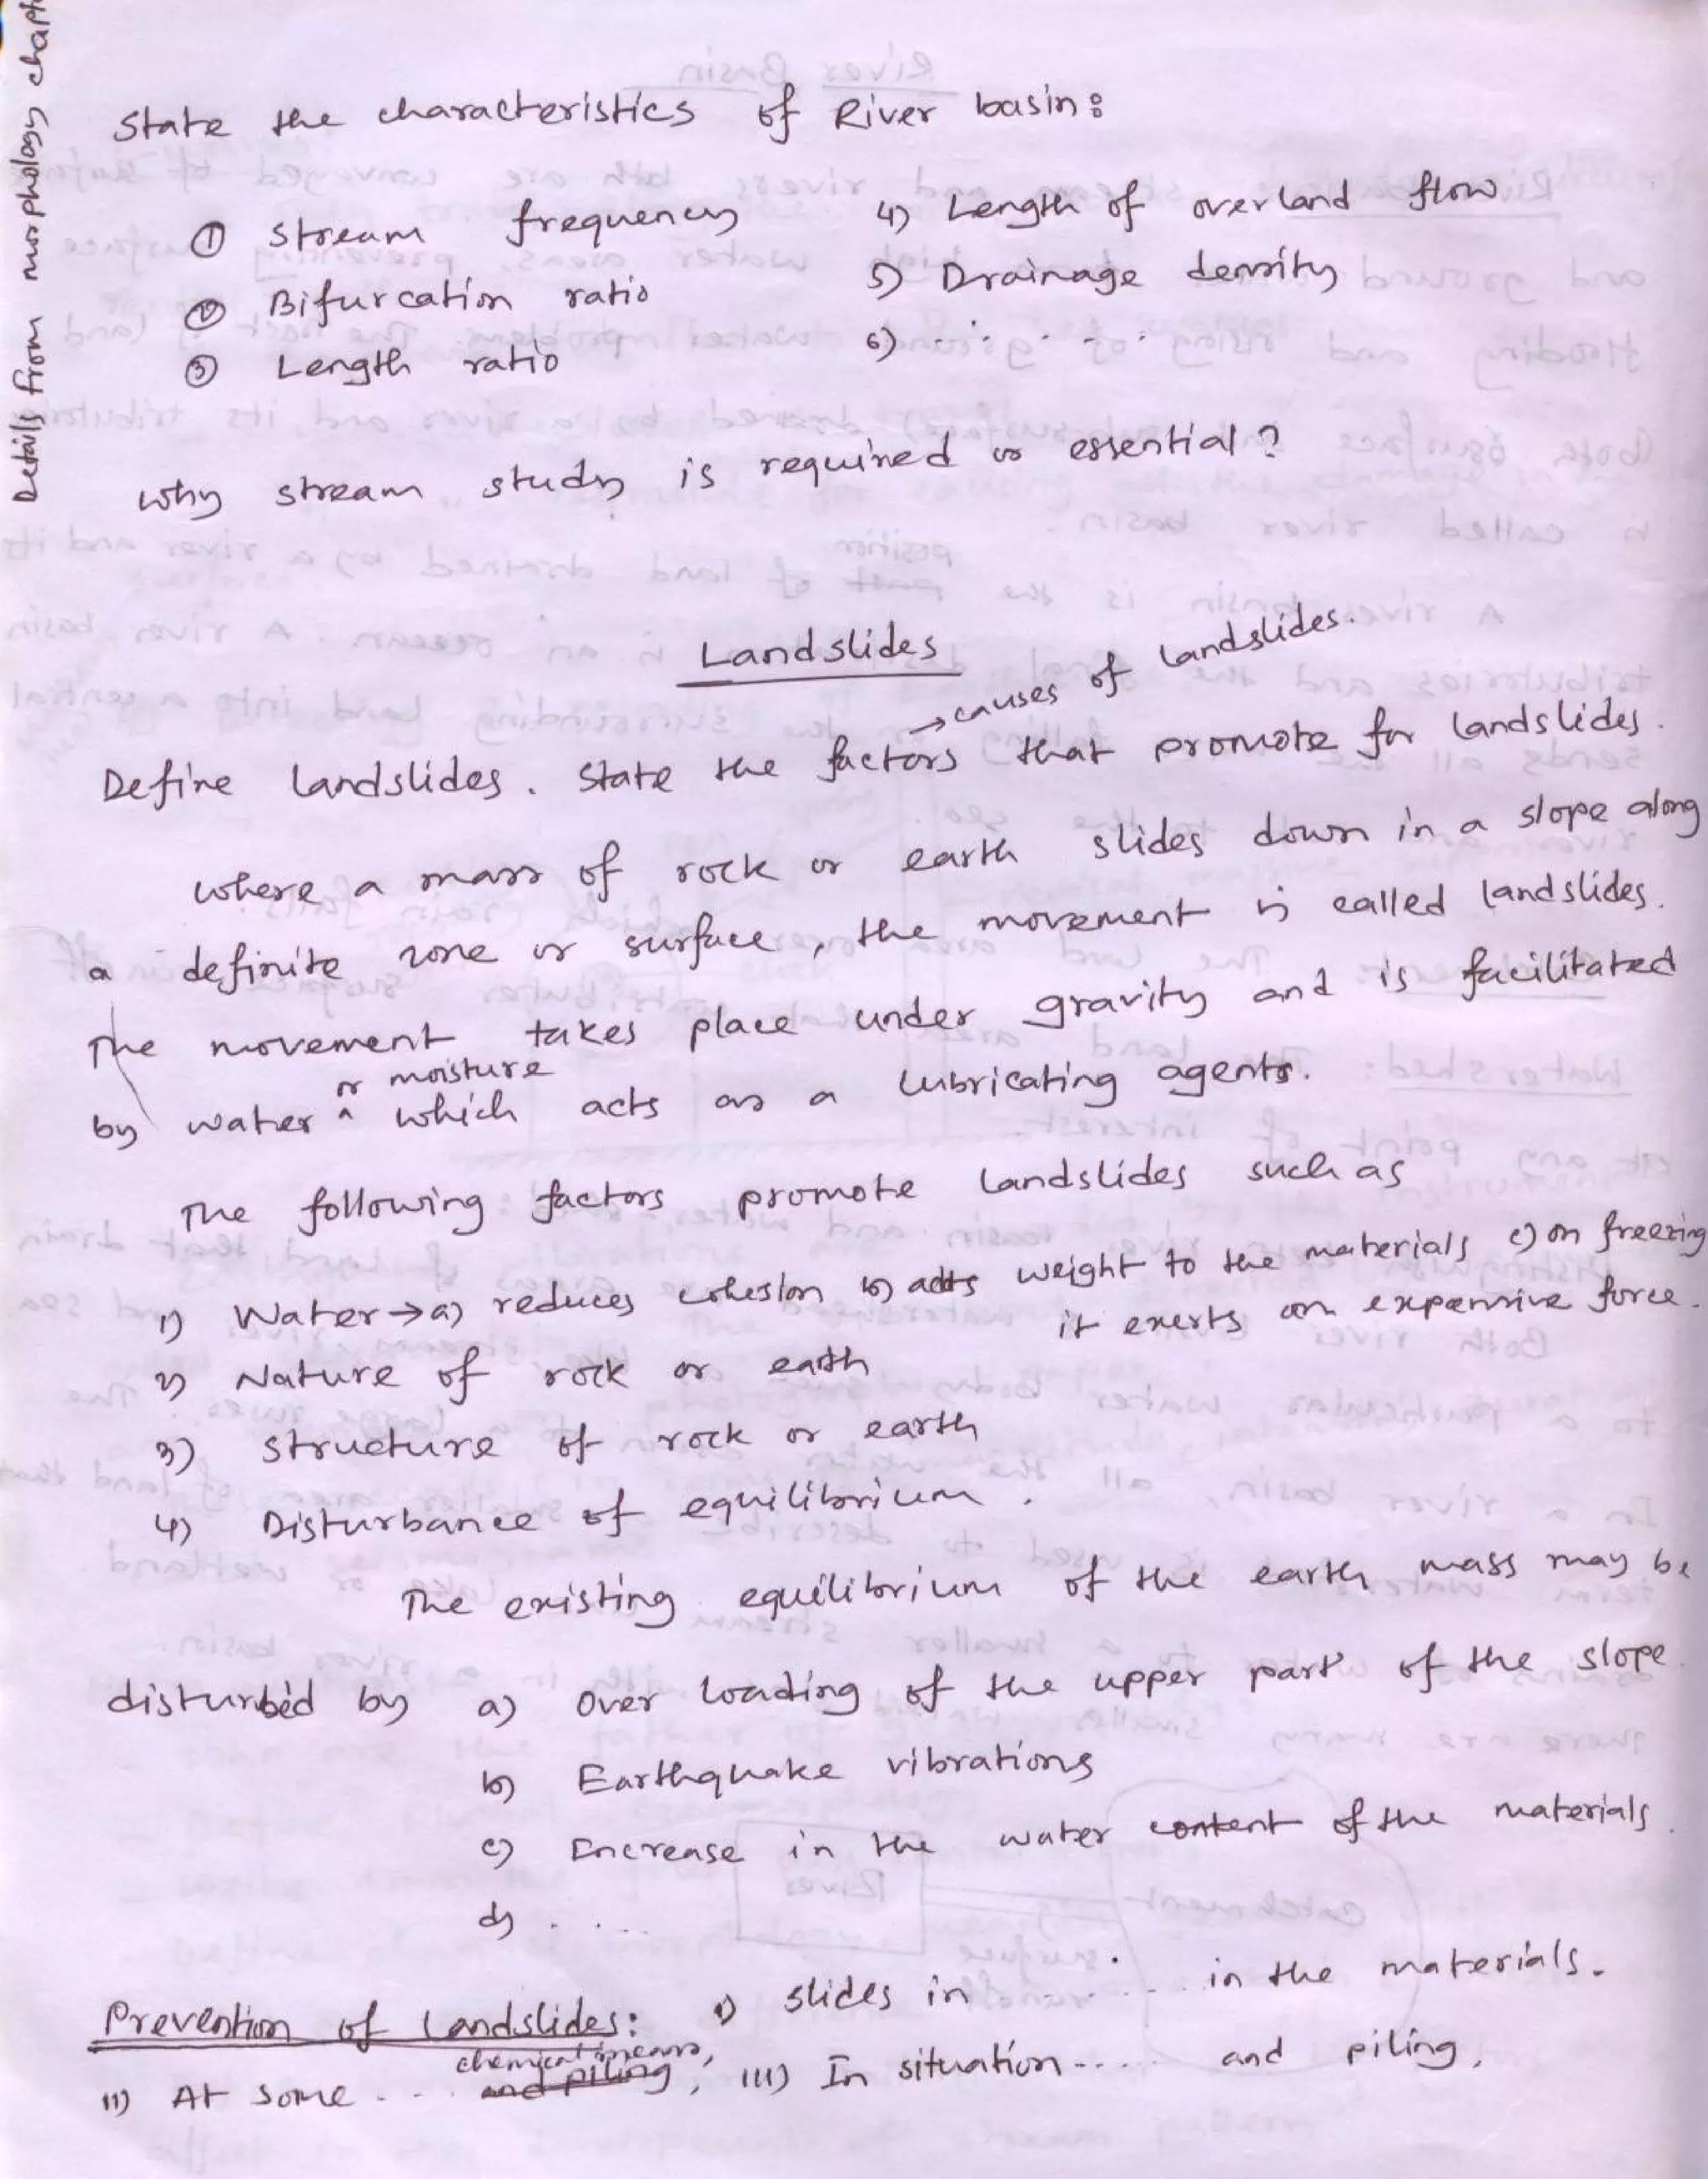 Details from morphology chapt
State the characteristics of River basin:
① Stream frequency 4) Length of overland flow
② Bifurcation ratio 5) Drainage density
③ Length ratio 6) . . . . . .
Why stream study is required or essential?
Landslides
→ causes of landslides.
Define landslides. State the factors that promote for landslides.
Where a mass of rock or earth slides down in a slope along
a definite zone or surface, the movement is called landslides.
The movement takes place under gravity and is facilitated
or moisture
by water ^ which acts as a lubricating agents.
The following factors promote landslides such as
1) Water → a) reduces cohesion b) adds weight to the materials c) on freezing
it exerts an expansive force.
2) Nature of rock or earth
3) Structure of rock or earth
4) Disturbance of equilibrium.
The existing equilibrium of the earth mass may be
disturbed by a) Over loading of the upper part of the slope
b) Earthquake vibrations
c) Increase in the water content of the materials.
d) . . . .
Prevention of Landslides: i) slides in . . . . . in the materials.
chemical means,
ii) At some . . . and piling, iii) In situation . . . . and piling.